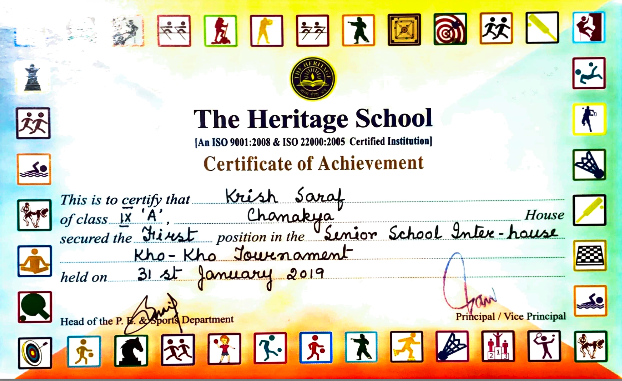 The Heritage School
[An ISO 9001:2008 & ISO 22000:2005 Certified Institution]
Certificate of Achievement
This is to certify that Krish Saraf
of class IX 'A', Chanakya House
secured the First position in the Senior School Inter-house
Kho-Kho Tournament
held on 31st January 2019
Head of the P. E. & Sports Department
Principal / Vice Principal